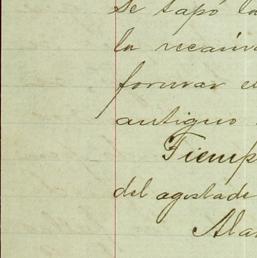 Se tapó la
la recáma
formar e
antiguo
Tiemp
del agostade
Ala